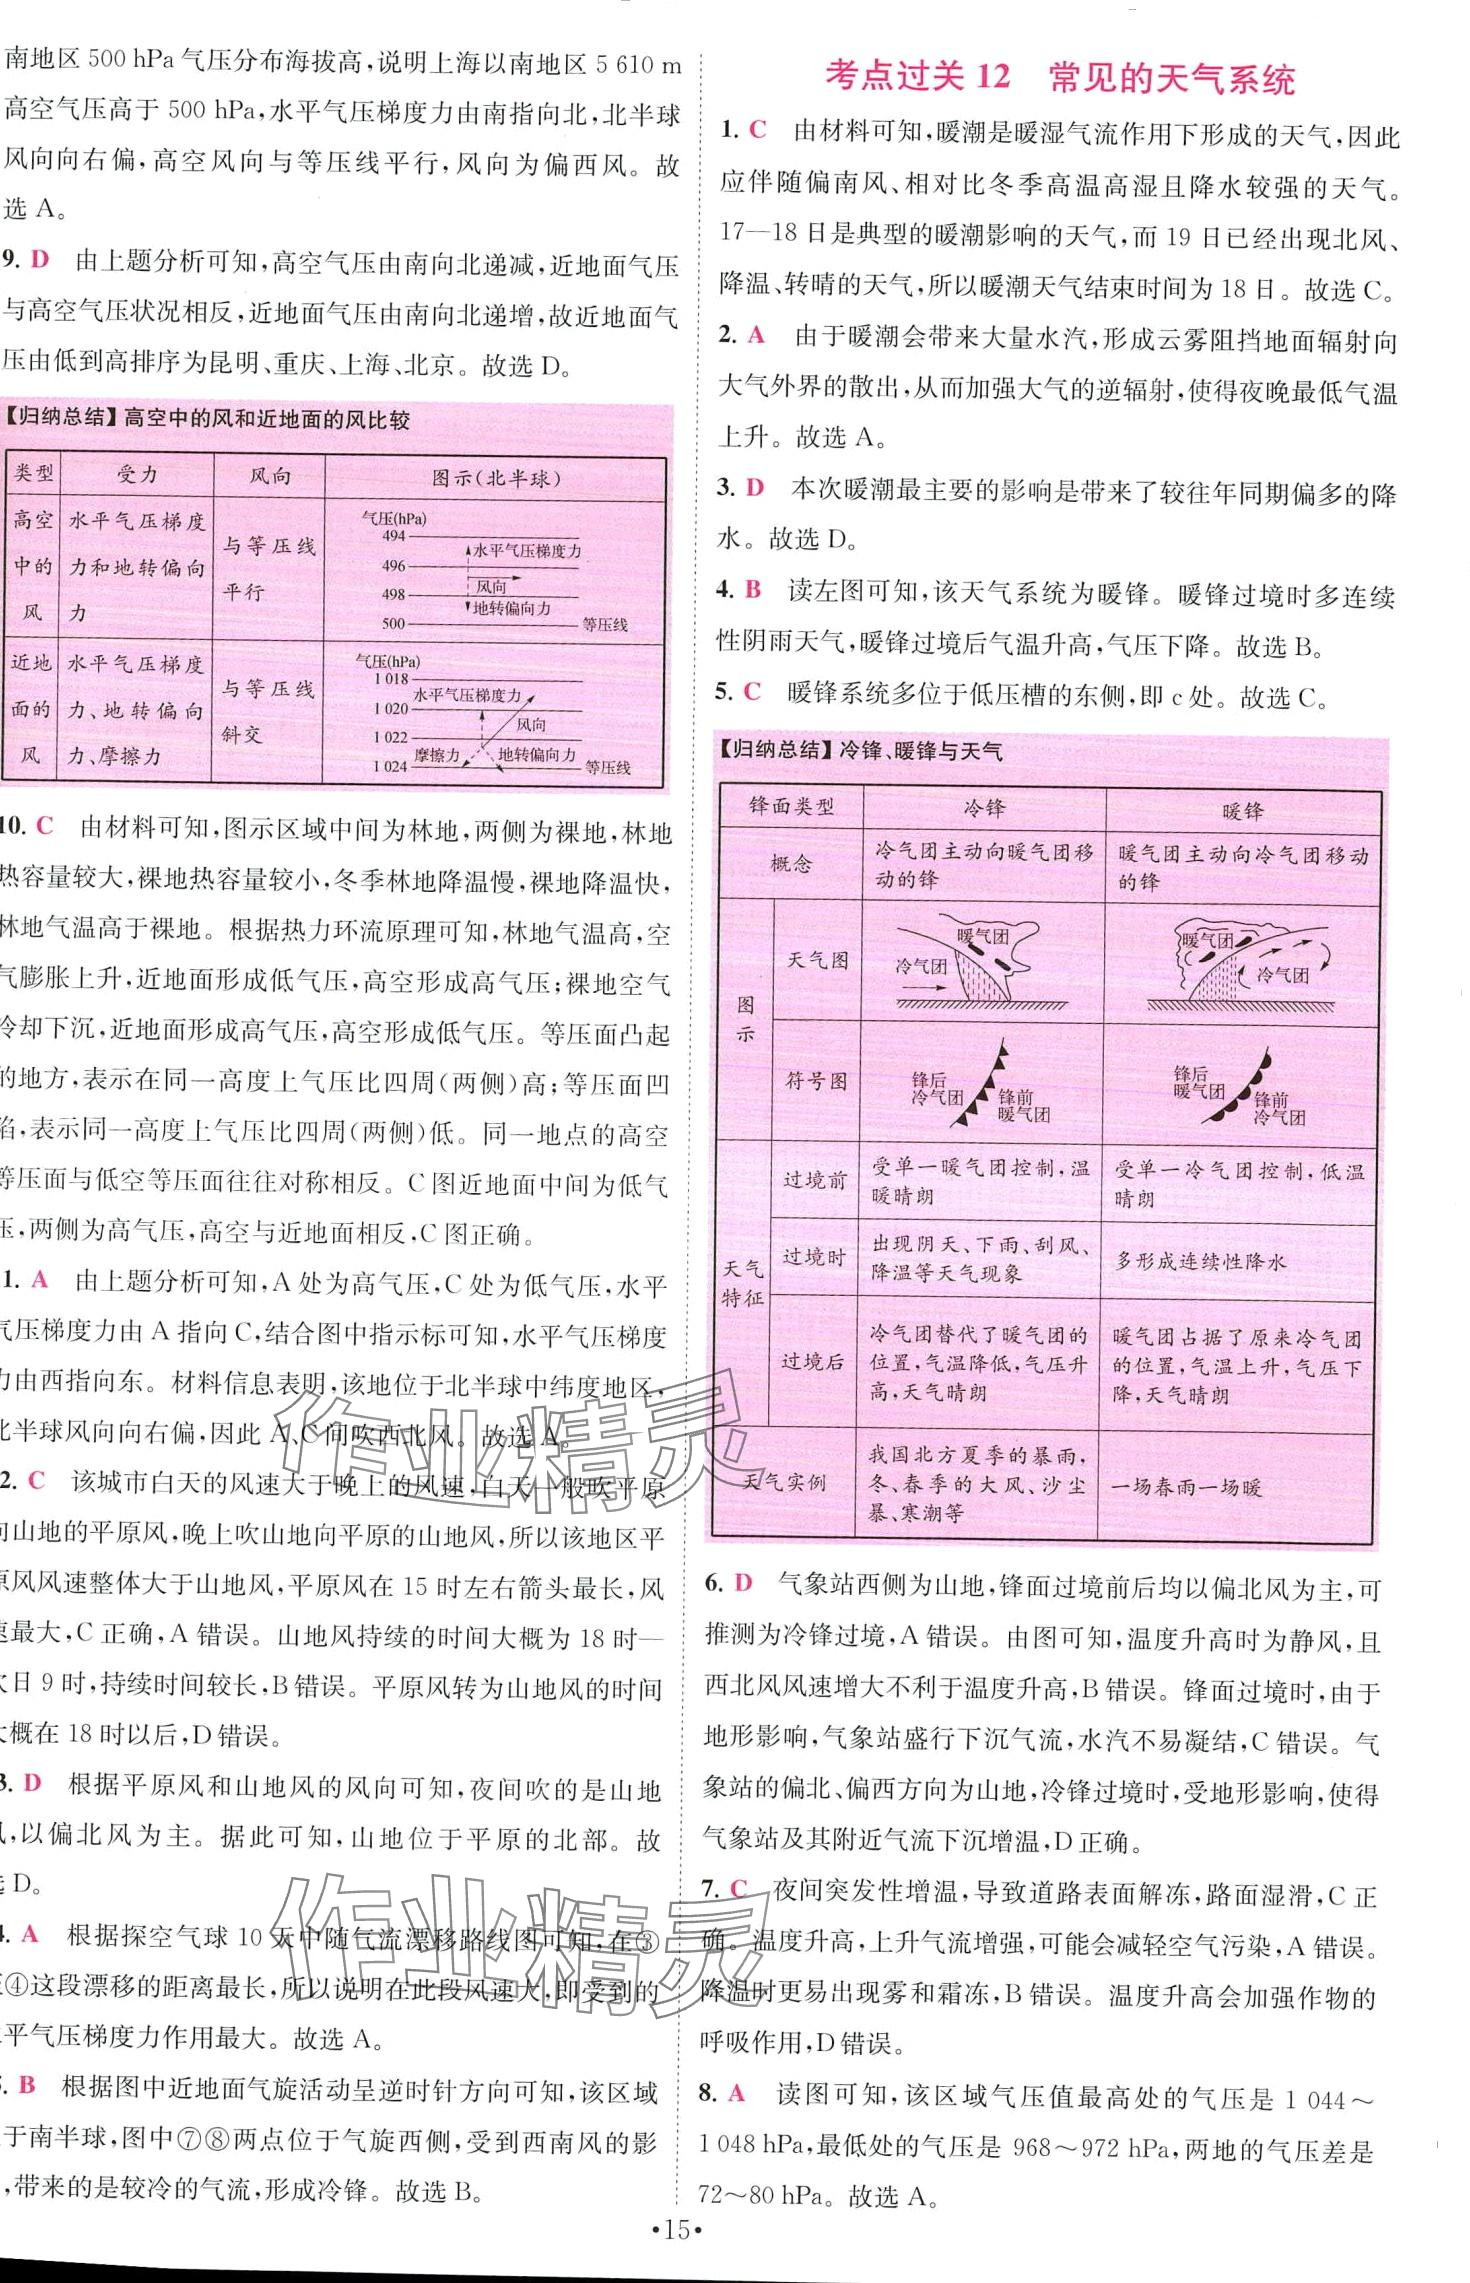 南地区 500 hPa 气压分布海拔高,说明上海以南地区 5 610 m
高空气压高于 500 hPa,水平气压梯度力由南指向北,北半球
风向向右偏,高空风向与等压线平行,风向为偏西风。故
选 A。
9. D 由上题分析可知,高空气压由南向北递减,近地面气压
与高空气压状况相反,近地面气压由南向北递增,故近地面气
压由低到高排序为昆明、重庆、上海、北京。故选 D。
【归纳总结】高空中的风和近地面的风比较
类型 受力 风向 图示(北半球)
高空中的风 水平气压梯度力和地转偏向力 与等压线平行
气压(hPa)
494
水平气压梯度力
496
风向
498
地转偏向力
500 等压线
近地面的风 水平气压梯度力、地转偏向力、摩擦力 与等压线斜交
气压(hPa)
1 018
水平气压梯度力
1 020
风向
1 022
摩擦力 地转偏向力
1 024 等压线
10. C 由材料可知,图示区域中间为林地,两侧为裸地,林地
热容量较大,裸地热容量较小,冬季林地降温慢,裸地降温快,
林地气温高于裸地。根据热力环流原理可知,林地气温高,空
气膨胀上升,近地面形成低气压,高空形成高气压;裸地空气
冷却下沉,近地面形成高气压,高空形成低气压。等压面凸起
的地方,表示在同一高度上气压比四周(两侧)高;等压面凹
陷,表示同一高度上气压比四周(两侧)低。同一地点的高空
等压面与低空等压面往往对称相反。C 图近地面中间为低气
压,两侧为高气压,高空与近地面相反,C 图正确。
1. A 由上题分析可知,A 处为高气压,C 处为低气压,水平
气压梯度力由 A 指向 C,结合图中指示标可知,水平气压梯度
力由西指向东。材料信息表明,该地位于北半球中纬度地区,
北半球风向向右偏,因此 A、C 间吹西北风。故选 A。
2. C 该城市白天的风速大于晚上的风速,白天一般吹平原
向山地的平原风,晚上吹山地向平原的山地风,所以该地区平
原风风速整体大于山地风,平原风在 15 时左右箭头最长,风
速最大,C 正确,A 错误。山地风持续的时间大概为 18 时—
次日 9 时,持续时间较长,B 错误。平原风转为山地风的时间
大概在 18 时以后,D 错误。
3. D 根据平原风和山地风的风向可知,夜间吹的是山地
风,以偏北风为主。据此可知,山地位于平原的北部。故
选 D。
4. A 根据探空气球 10 天中随气流漂移路线图可知,在③
至④这段漂移的距离最长,所以说明在此段风速大,即受到的
水平气压梯度力作用最大。故选 A。
5. B 根据图中近地面气旋活动呈逆时针方向可知,该区域
于南半球,图中⑦⑧两点位于气旋西侧,受到西南风的影
,带来的是较冷的气流,形成冷锋。故选 B。
考点过关 12 常见的天气系统
1. C 由材料可知,暖潮是暖湿气流作用下形成的天气,因此
应伴随偏南风、相对比冬季高温高湿且降水较强的天气。
17—18 日是典型的暖潮影响的天气,而 19 日已经出现北风、
降温、转晴的天气,所以暖潮天气结束时间为 18 日。故选 C。
2. A 由于暖潮会带来大量水汽,形成云雾阻挡地面辐射向
大气外界的散出,从而加强大气的逆辐射,使得夜晚最低气温
上升。故选 A。
3. D 本次暖潮最主要的影响是带来了较往年同期偏多的降
水。故选 D。
4. B 读左图可知,该天气系统为暖锋。暖锋过境时多连续
性阴雨天气,暖锋过境后气温升高,气压下降。故选 B。
5. C 暖锋系统多位于低压槽的东侧,即 c 处。故选 C。
【归纳总结】冷锋、暖锋与天气
锋面类型 冷锋 暖锋
概念 冷气团主动向暖气团移动的锋 暖气团主动向冷气团移动的锋
图示 天气图 暖气团 冷气团 暖气团 冷气团
符号图 锋后冷气团 锋前暖气团 锋后暖气团 锋前冷气团
天气特征 过境前 受单一暖气团控制,温暖晴朗 受单一冷气团控制,低温晴朗
过境时 出现阴天、下雨、刮风、降温等天气现象 多形成连续性降水
过境后 冷气团替代了暖气团的位置,气温降低,气压升高,天气晴朗 暖气团占据了原来冷气团的位置,气温上升,气压下降,天气晴朗
天气实例 我国北方夏季的暴雨,冬、春季的大风、沙尘暴、寒潮等 一场春雨一场暖
6. D 气象站西侧为山地,锋面过境前后均以偏北风为主,可
推测为冷锋过境,A 错误。由图可知,温度升高时为静风,且
西北风风速增大不利于温度升高,B 错误。锋面过境时,由于
地形影响,气象站盛行下沉气流,水汽不易凝结,C 错误。气
象站的偏北、偏西方向为山地,冷锋过境时,受地形影响,使得
气象站及其附近气流下沉增温,D 正确。
7. C 夜间突发性增温,导致道路表面解冻,路面湿滑,C 正
确。温度升高,上升气流增强,可能会减轻空气污染,A 错误。
降温时更易出现雾和霜冻,B 错误。温度升高会加强作物的
呼吸作用,D 错误。
8. A 读图可知,该区域气压值最高处的气压是 1 044～
1 048 hPa,最低处的气压是 968～972 hPa,两地的气压差是
72～80 hPa。故选 A。
作业精灵
作业精灵
•15•